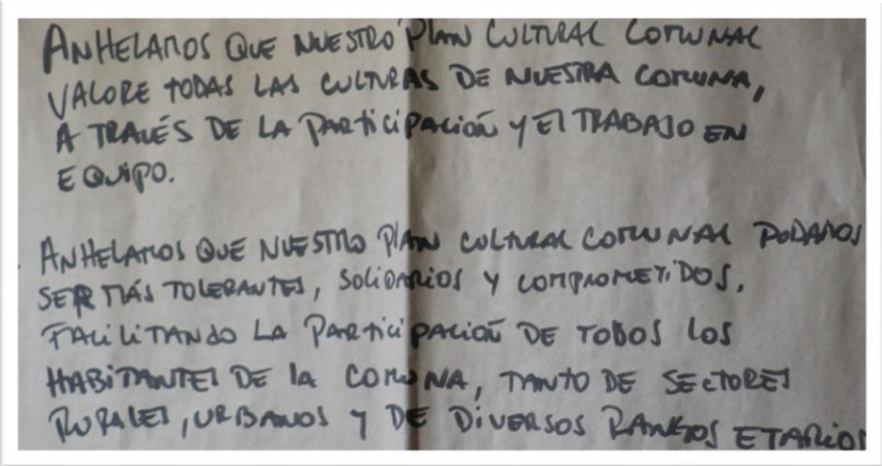 ANHELAMOS QUE NUESTRO PLAN CULTURAL COMUNAL
VALORE TODAS LAS CULTURAS DE NUESTRA COMUNA,
A TRAVÉS DE LA PARTICIPACIÓN Y EL TRABAJO EN
EQUIPO.
ANHELAMOS QUE NUESTRO PLAN CULTURAL COMUNAL PODAMOS
SER MÁS TOLERANTES, SOLIDARIOS Y COMPROMETIDOS,
FACILITANDO LA PARTICIPACIÓN DE TODOS LOS
HABITANTES DE LA COMUNA, TANTO DE SECTORES
RURALES, URBANOS Y DE DIVERSOS RANGOS ETARIOS